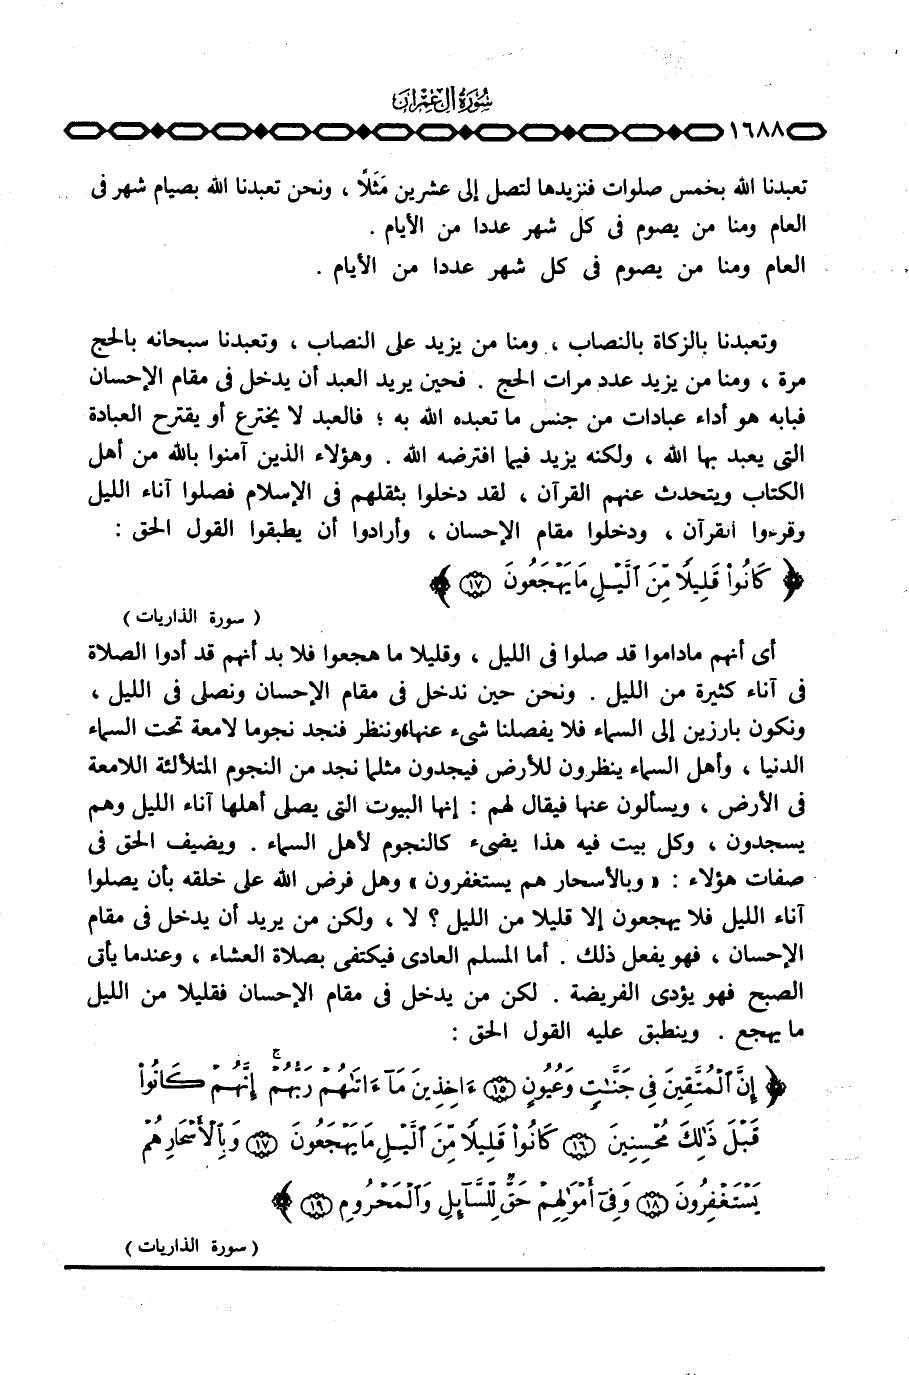 سُورَةُ آلِ عِمْرَانَ
١٦٨٨
تعبدنا الله بخمس صلوات فنزيدها لتصل إلى عشرين مَثَلًا ، ونحن تعبدنا الله بصيام شهر فى
العام ومنا من يصوم فى كل شهر عددا من الأيام .
العام ومنا من يصوم فى كل شهر عددا من الأيام .
وتعبدنا بالزكاة بالنصاب ، ومنا من يزيد على النصاب ، وتعبدنا سبحانه بالحج
مرة ، ومنا من يزيد عدد مرات الحج . فحين يريد العبد أن يدخل فى مقام الإحسان
فبابه هو أداء عبادات من جنس ما تعبده الله به ؛ فالعبد لا يخترع أو يقترح العبادة
التى يعبد بها الله ، ولكنه يزيد فيما افترضه الله . وهؤلاء الذين آمنوا بالله من أهل
الكتاب ويتحدث عنهم القرآن ، لقد دخلوا بثقلهم فى الإسلام فصلوا آناء الليل
وقرءوا القرآن ، ودخلوا مقام الإحسان ، وأرادوا أن يطبقوا القول الحق :
﴿ كَانُوا۟ قَلِيلًا مِّنَ ٱلَّيْلِ مَا يَهْجَعُونَ ١٧ ﴾
( سورة الذاريات )
أى أنهم ماداموا قد صلوا فى الليل ، وقليلا ما هجعوا فلا بد أنهم قد أدوا الصلاة
فى آناء كثيرة من الليل . ونحن حين ندخل فى مقام الإحسان ونصلى فى الليل ،
ونكون بارزين إلى السماء فلا يفصلنا شىء عنها، وننظر فنجد نجوما لامعة تحت السماء
الدنيا ، وأهل السماء ينظرون للأرض فيجدون مثلما نجد من النجوم المتلألئة اللامعة
فى الأرض ، ويسألون عنها فيقال لهم : إنها البيوت التى يصلى أهلها آناء الليل وهم
يسجدون ، وكل بيت فيه هذا يضىء كالنجوم لأهل السماء . ويضيف الحق فى
صفات هؤلاء : « وبالأسحار هم يستغفرون » وهل فرض الله على خلقه بأن يصلوا
آناء الليل فلا يهجعون إلا قليلا من الليل ؟ لا ، ولكن من يريد أن يدخل فى مقام
الإحسان ، فهو يفعل ذلك . أما المسلم العادى فيكتفى بصلاة العشاء ، وعندما يأتى
الصبح فهو يؤدى الفريضة . لكن من يدخل فى مقام الإحسان فقليلا من الليل
ما يهجع . وينطبق عليه القول الحق :
﴿ إِنَّ ٱلْمُتَّقِينَ فِى جَنَّٰتٍ وَعُيُونٍ ١٥ ءَاخِذِينَ مَآ ءَاتَىٰهُمْ رَبُّهُمْ ۚ إِنَّهُمْ كَانُوا۟
قَبْلَ ذَٰلِكَ مُحْسِنِينَ ١٦ كَانُوا۟ قَلِيلًا مِّنَ ٱلَّيْلِ مَا يَهْجَعُونَ ١٧ وَبِٱلْأَسْحَارِ هُمْ
يَسْتَغْفِرُونَ ١٨ وَفِىٓ أَمْوَٰلِهِمْ حَقٌّ لِّلسَّآئِلِ وَٱلْمَحْرُومِ ١٩ ﴾
( سورة الذاريات )